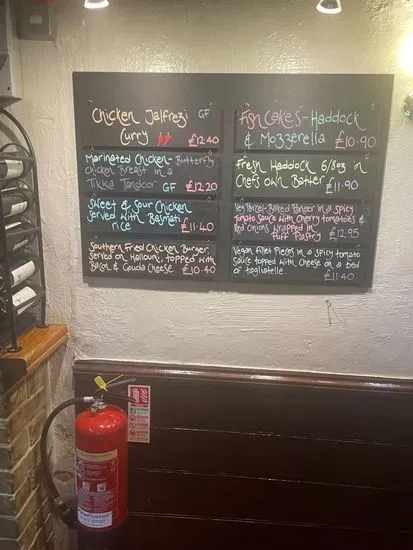 Chicken Jalfrezi GF
Curry £12.40
Marinated Chicken - Butterfly
chicken Breast in a
Tikka Tandoor GF £12.20
Sweet & Sour Chicken
served with Basmati
rice £11.40
Southern Fried Chicken Burger
served on Halloumi, topped with
Bacon & Gouda Cheese £10.40
Fish Cakes - Haddock
& Mozzerella £10.90
Fresh Haddock 6/8oz in
Chefs own Batter £11.90
Veg Parcel-Baked Paneer in a spicy
Tomato Sauce with Cherry tomatoes &
Red Onions wrapped in
Puff Pastry £12.95
Vegan fillet Pieces in a spicy tomato
sauce topped with Cheese on a bed
of tagliatelle
£11.40